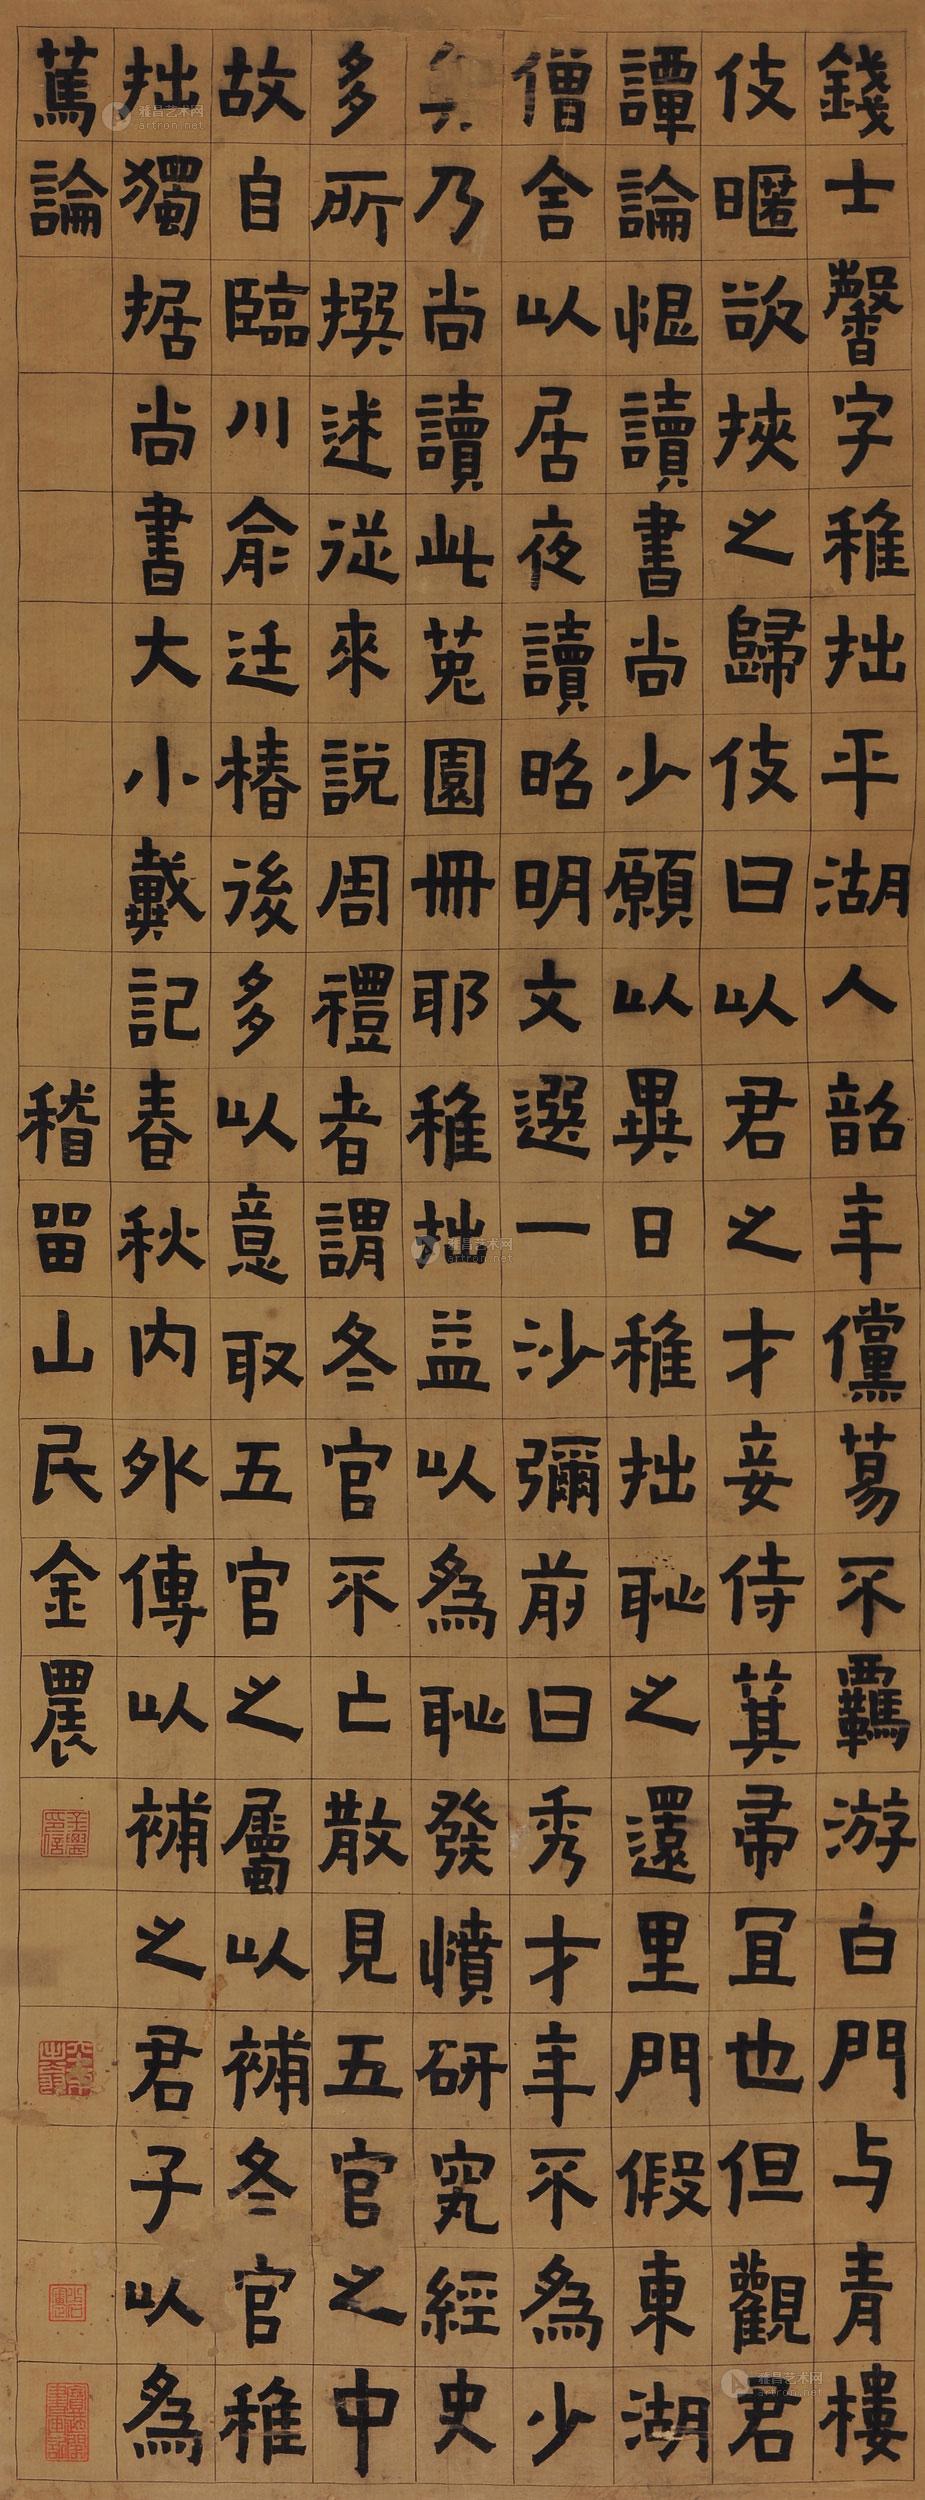 錢士馨字稚拙平湖人韶年儻蕩不羈游白門与青樓
伎暱欲挾之歸伎曰以君之才妾侍箕帚宜也但觀君
譚論愠讀書尚少願以異日稚拙恥之還里門假東湖
僧舍以居夜讀昭明文選一沙彌前曰秀才年不為少
矣乃尚讀此菟園冊耶稚拙益以為恥發憤研究經史
多所撰述從來說周禮者謂冬官不亡散見五官之中
故自臨川俞廷椿後多以意取五官之屬以補冬官稚
拙獨据尚書大小戴記春秋內外傳以補之君子以為
篤論
稽留山民金農
雅昌艺术网
artron.net
雅昌艺术网
artron.net
雅昌艺术网
artron.net